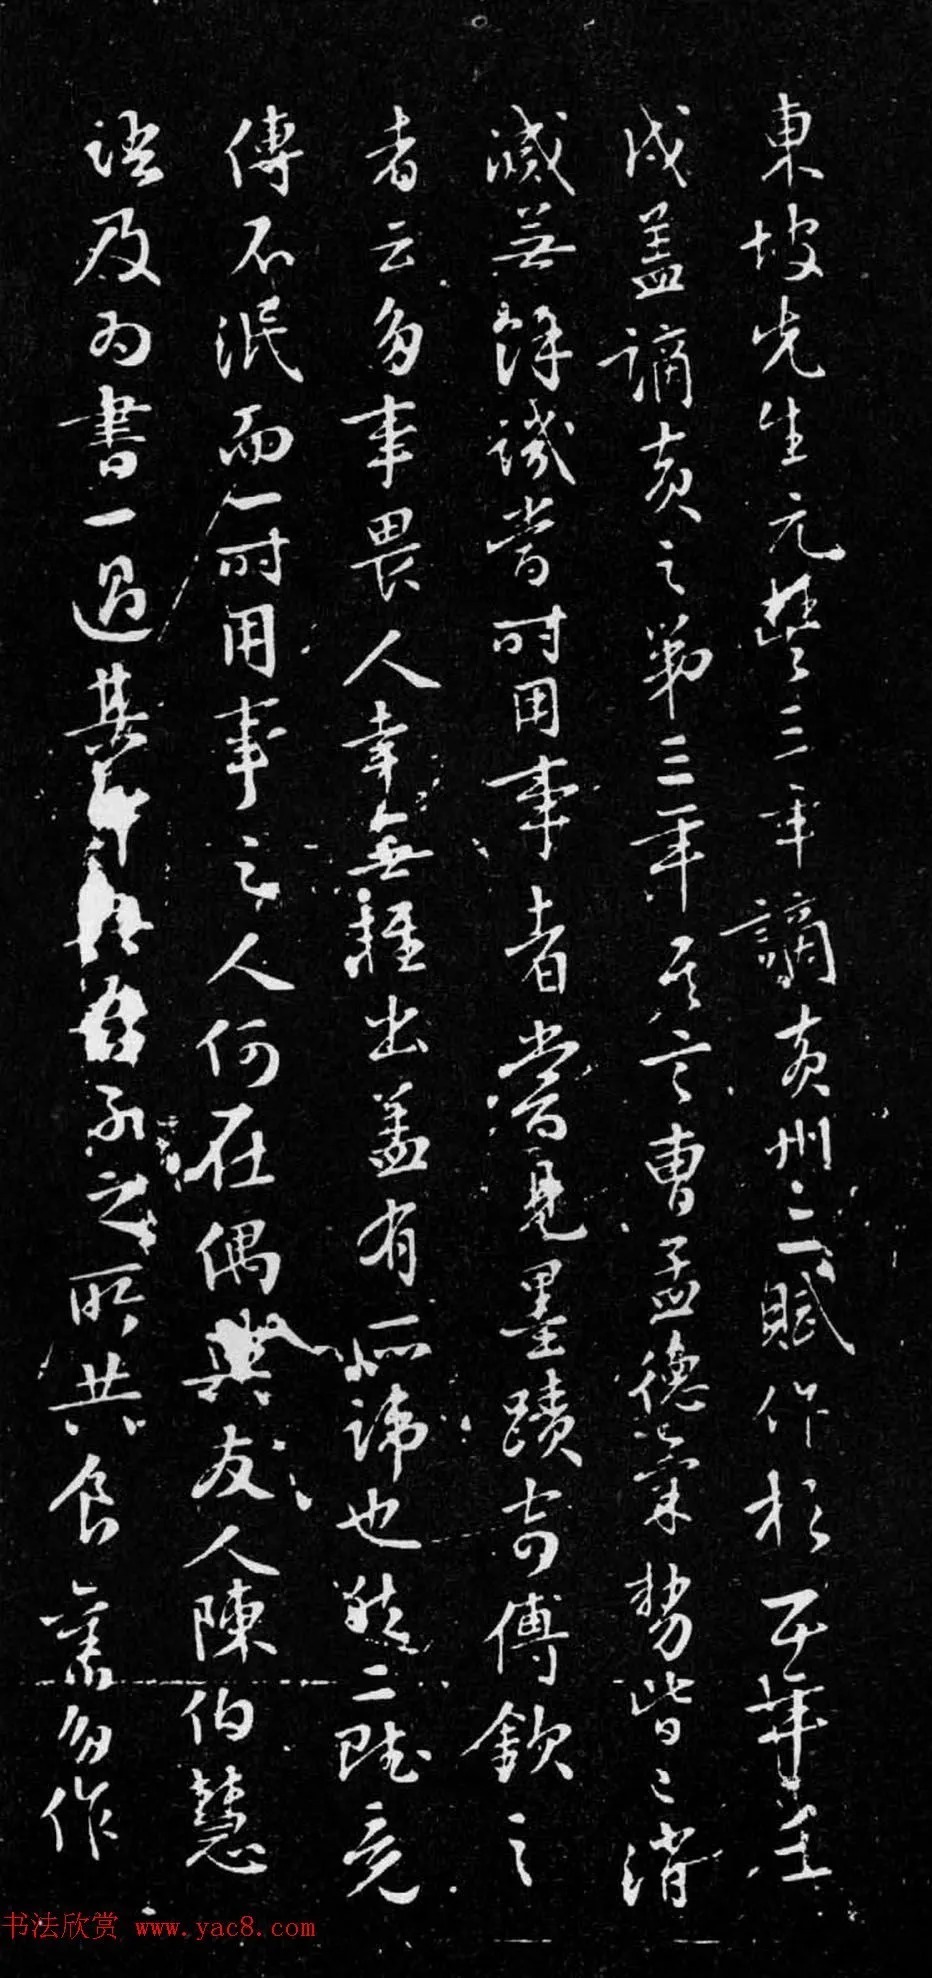 東坡先生元豐三年謫黃州二賦作於五年壬
戌蓋謫黃之第三年其言曹孟德氣勢皆已消
滅無餘譏當時用事者嘗見墨蹟寄傅欽之
者云多事畏人幸無輕出蓋有所諱也然二賦竟
傳不泯而一時用事之人何在偶與友人陳伯慧
語及為書一過其子之所共食舊多作
书法欣赏 www.yac8.com